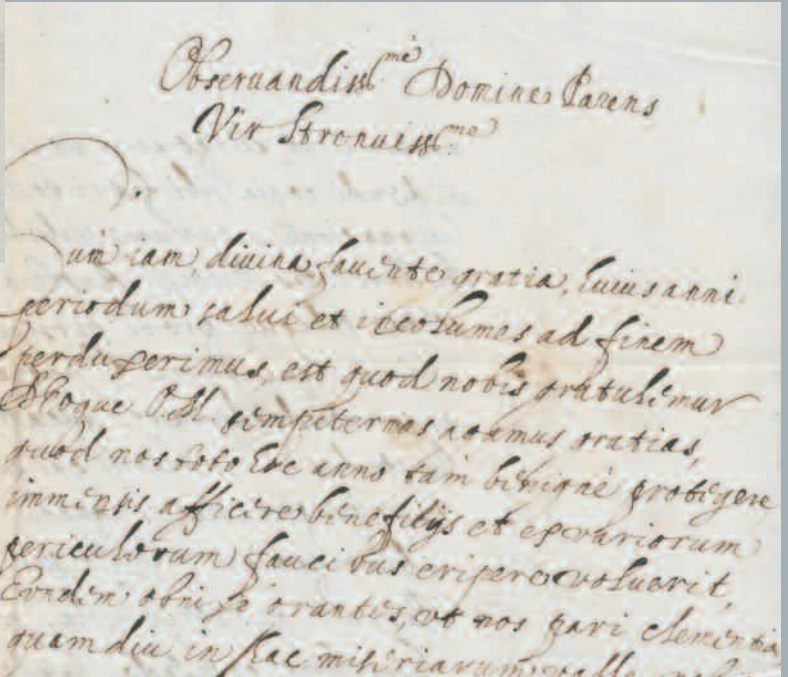 Observandiss.me Domine Parens
Vir Strenuiss.me
Cum iam, divina favente gratia, huius anni
periodum salvi et incolumes ad finem
perduxerimus, est quod nobis gratulemur
Deoque O.M. sempiternas agamus gratias,
quod nos toto hoc anno tam benignè protegere
immensis afficere beneficijs et ex variorum
periculorum faucibus eripere voluerit,
Eundem obnixè orantes, ut nos pari clementia
quam diu in hac miseriarum valle